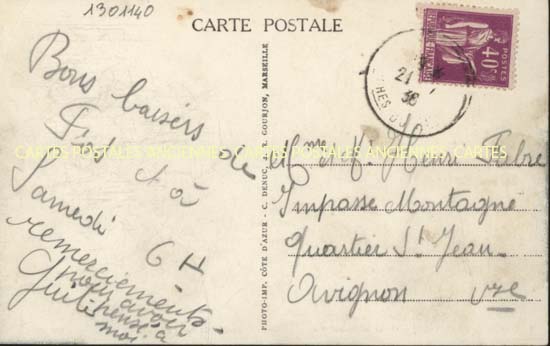 1301140
CARTE POSTALE
40c
POSTES
21
38
Bons baisers
et à
Samedi
6 H
remerciements
pour avoir
pensé à
moi
CARTES POSTALES ANCIENNES CARTES POSTALES ANCIENNES CARTES
PHOTO-IMP. CÔTE D'AZUR - C. DENUC, GOURJON, MARSEILLE
Mme M. Henri Fabre
Impasse Montagne
Quartier St Jean
Avignon Vse